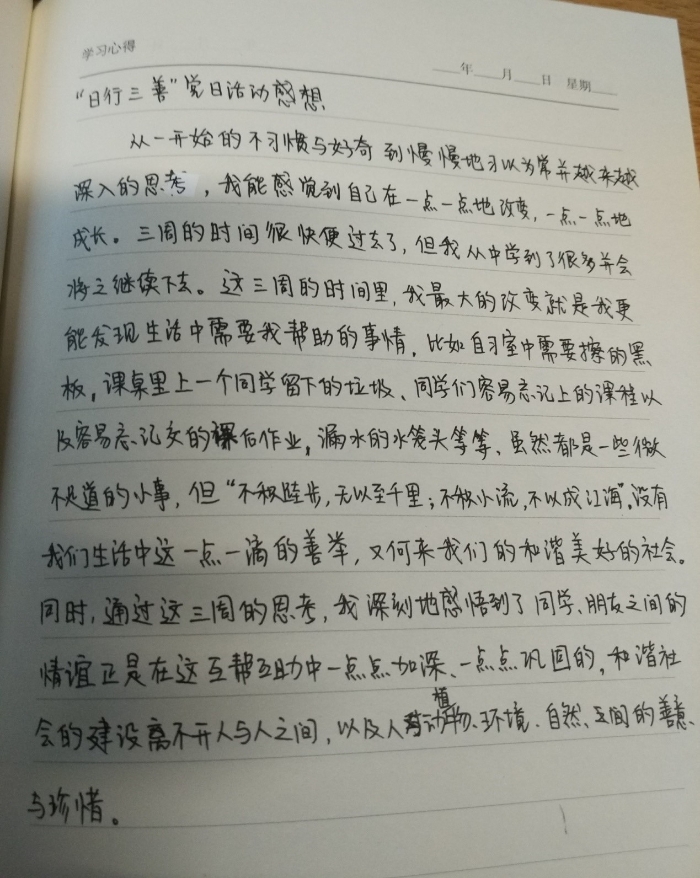 学习心得
年 月 日 星期
“日行三善”党日活动感想
从一开始的不习惯与好奇到慢慢地习以为常并越来越
深入的思考，我能感觉到自己在一点一点地改变，一点一点地
成长。三周的时间很快便过去了，但我从中学到了很多并会
将之继续下去。这三周的时间里，我最大的改变就是我更
能发现生活中需要我帮助的事情，比如自习室中需要擦的黑
板，课桌里上一个同学留下的垃圾、同学们容易忘记上的课程以
及容易忘记交的课后作业，漏水的水笼头等等、虽然都是一些微
不足道的小事，但“不积跬步，无以至千里；不积小流，不以成江海”。没有
我们生活中这一点一滴的善举，又何来我们的和谐美好的社会。
同时，通过这三周的思考，我深刻地感悟到了同学、朋友之间的
情谊正是在这互帮互助中一点点加深、一点点巩固的，和谐社
会的建设离不开人与人之间，以及人与动植物、环境、自然、之间的善意、
与珍惜。